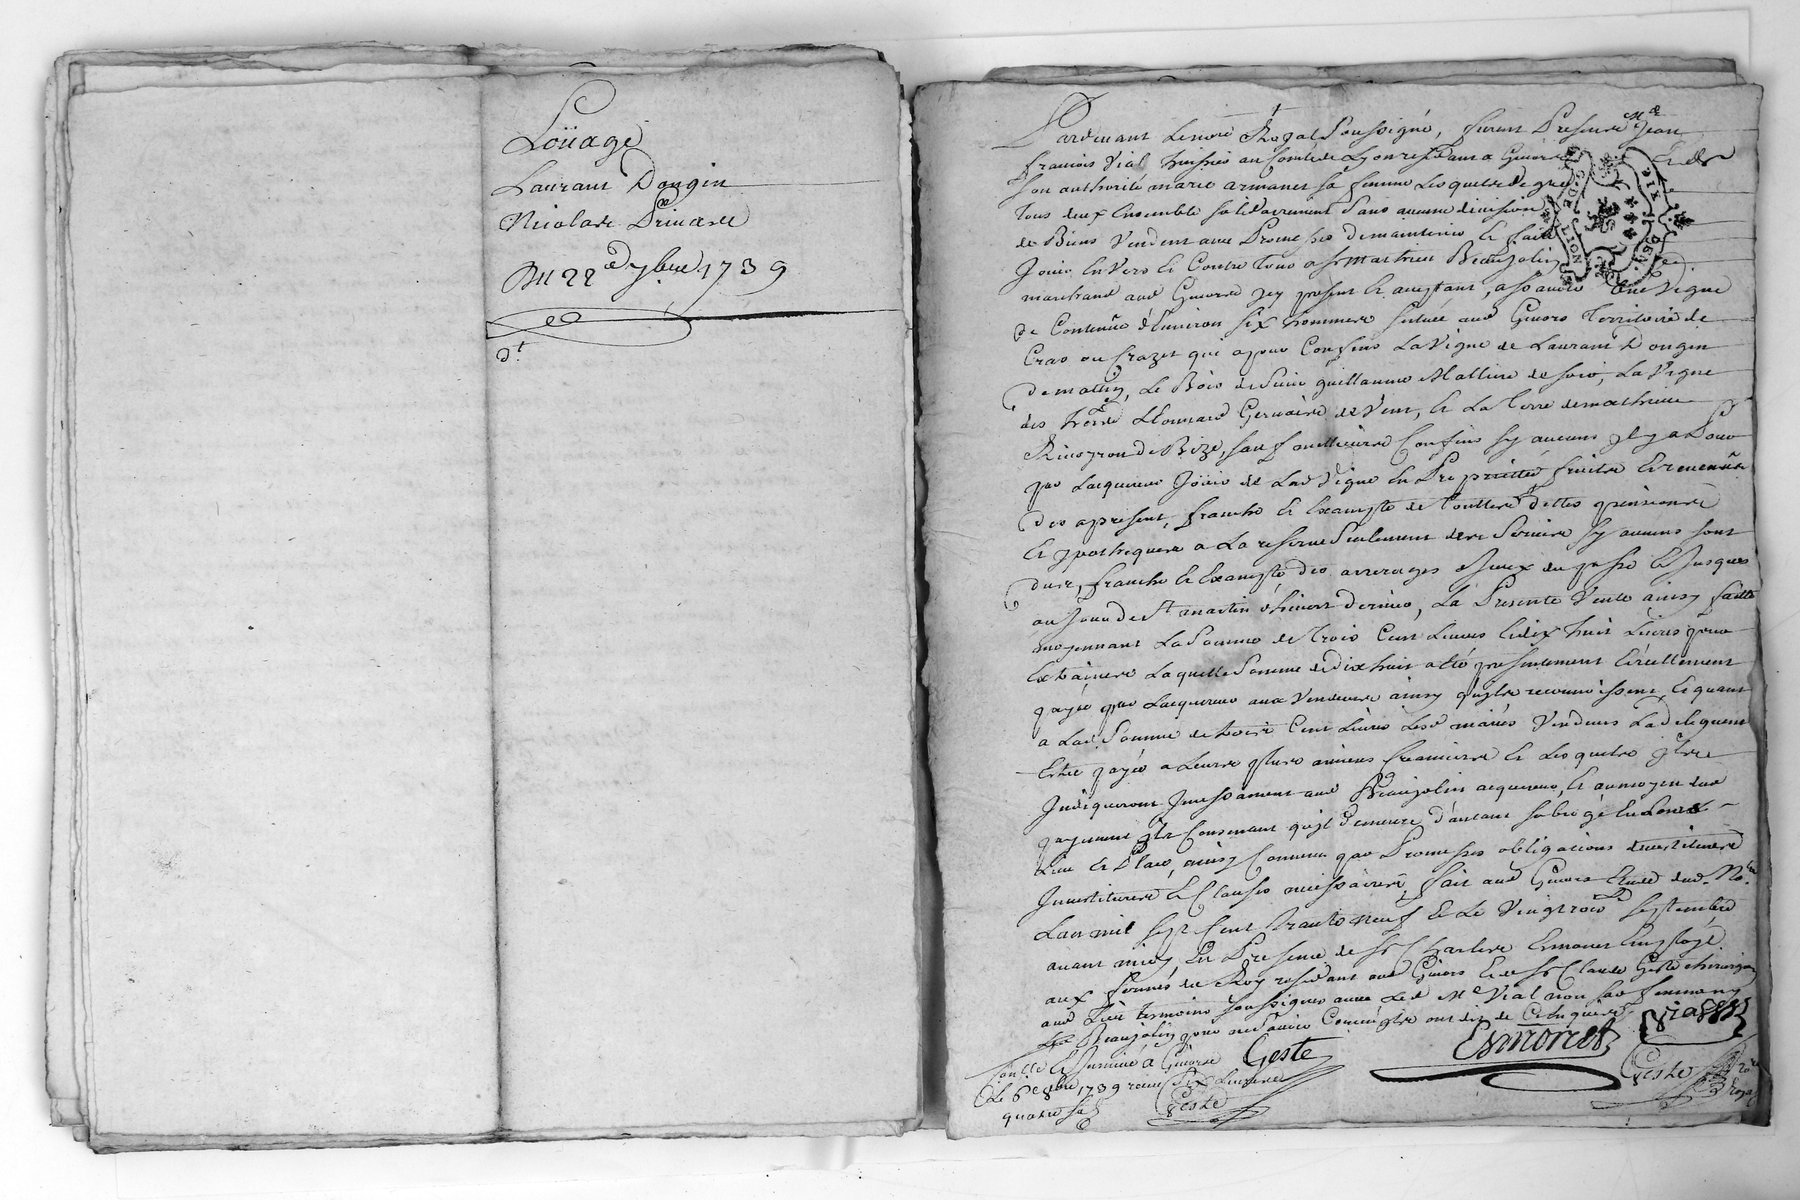 Loüage
Laurant Dongin
Nicolas Primard
Du 22e 7bre 1739
dt
Pardevant Le nore Royal Soussigné, furent Presents Me Jean
francois Vial huissier au Comté de Lyon residant a Givors Et de
Son authorité marie armanet sa femme Lesquels de gré
tous deux Ensemble solidairement Sans aucune division
de Biens Vendent avec Promesses de maintenir Et faire
Jouir Envers Et Contre tous a sr Mathieu Beaujolin
marchand aud Givors icy present Et acceptant, a scavoir Une Vigne
de Contenüe d'Environ six hommées scituée aud Givors Territoire de
Cras ou frazet qui a pour Confins La Vigne de Laurant Dongin
de matin, Le Bois de Guillaume de soir, La Vigne
des Leonnard Gervaise de Vent, Et La Terre de mathieu
de Bize, sauf meilleures Confins sy aucuns il y a Pour
par Lacquereur Joüir de Lad Vigne En Proprietté fruits Et revenus
des apresent, franche Et Exempte de Touttes Dettes pensions
Et ypotheques a La reserve Seulement des Servis sy aucuns sont
dus, franche Et Exempte des arrerages d'iceux du passé Et Jusques
au Jour de St martin d'hivert Dernier, La Presente Vente ainsy faitte
moyennant La Somme de Trois Cent Livres Et dix huit Livres pour
Extraines Laquelle Somme de dix huit a été presentement Et réellement
payée par Lacquereur aux Vendeurs ainsy qu'ils reconnoissent, Et quant
a Lad Somme de trois Cent Livres Lesd mariés Vendeurs La deleguent
Estre payée a Leurs plus anciens Creanciers Et Lesquels ils
Indiqueront Incessament aud Beaujolin acquereur, Et au moyen dud
payement ils Consentent qu'il Demeure d'autant subrogé En Leurs
Lieu Et Place, ainsy Convenu par Promesses obligations devestitures
Investitures Et Clauses necessaires, fait aud Givors Etude dud. Nore
Lan mil sept Cent Trante neuf Et Le Vingt trois septembre
avant midy En Presence de sr Charles Esmonet Employé
aux fermes du Roy residant aud Givors Et de sr Claude Geste chirurgien
aud Lieu temoins soussignes avec Led Me Vial non sad femme ny
Led Beaujolin pour ne Scavoir Comme ils ont dit de Ce Enquis
Vial
Esmonet
Geste
Geste
Conllé Et Insinué a Givors
Le 6e 8bre 1739 receu Six Livres
quatre sols
Geste